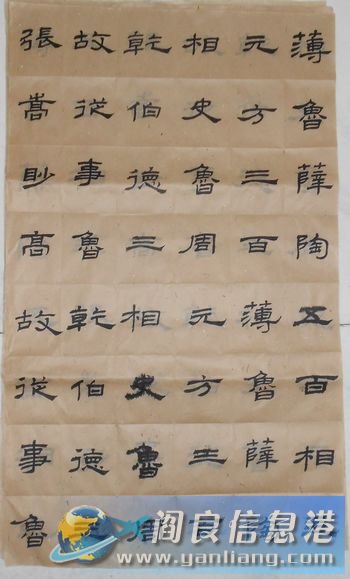 薄魯薛陶五百相
元方三百薄魯薛
相史魯周元方三百
乾伯德三相史魯周
故從事魯乾伯德
張嵩眇高故從事魯
阎良信息港
www.yanliang.com